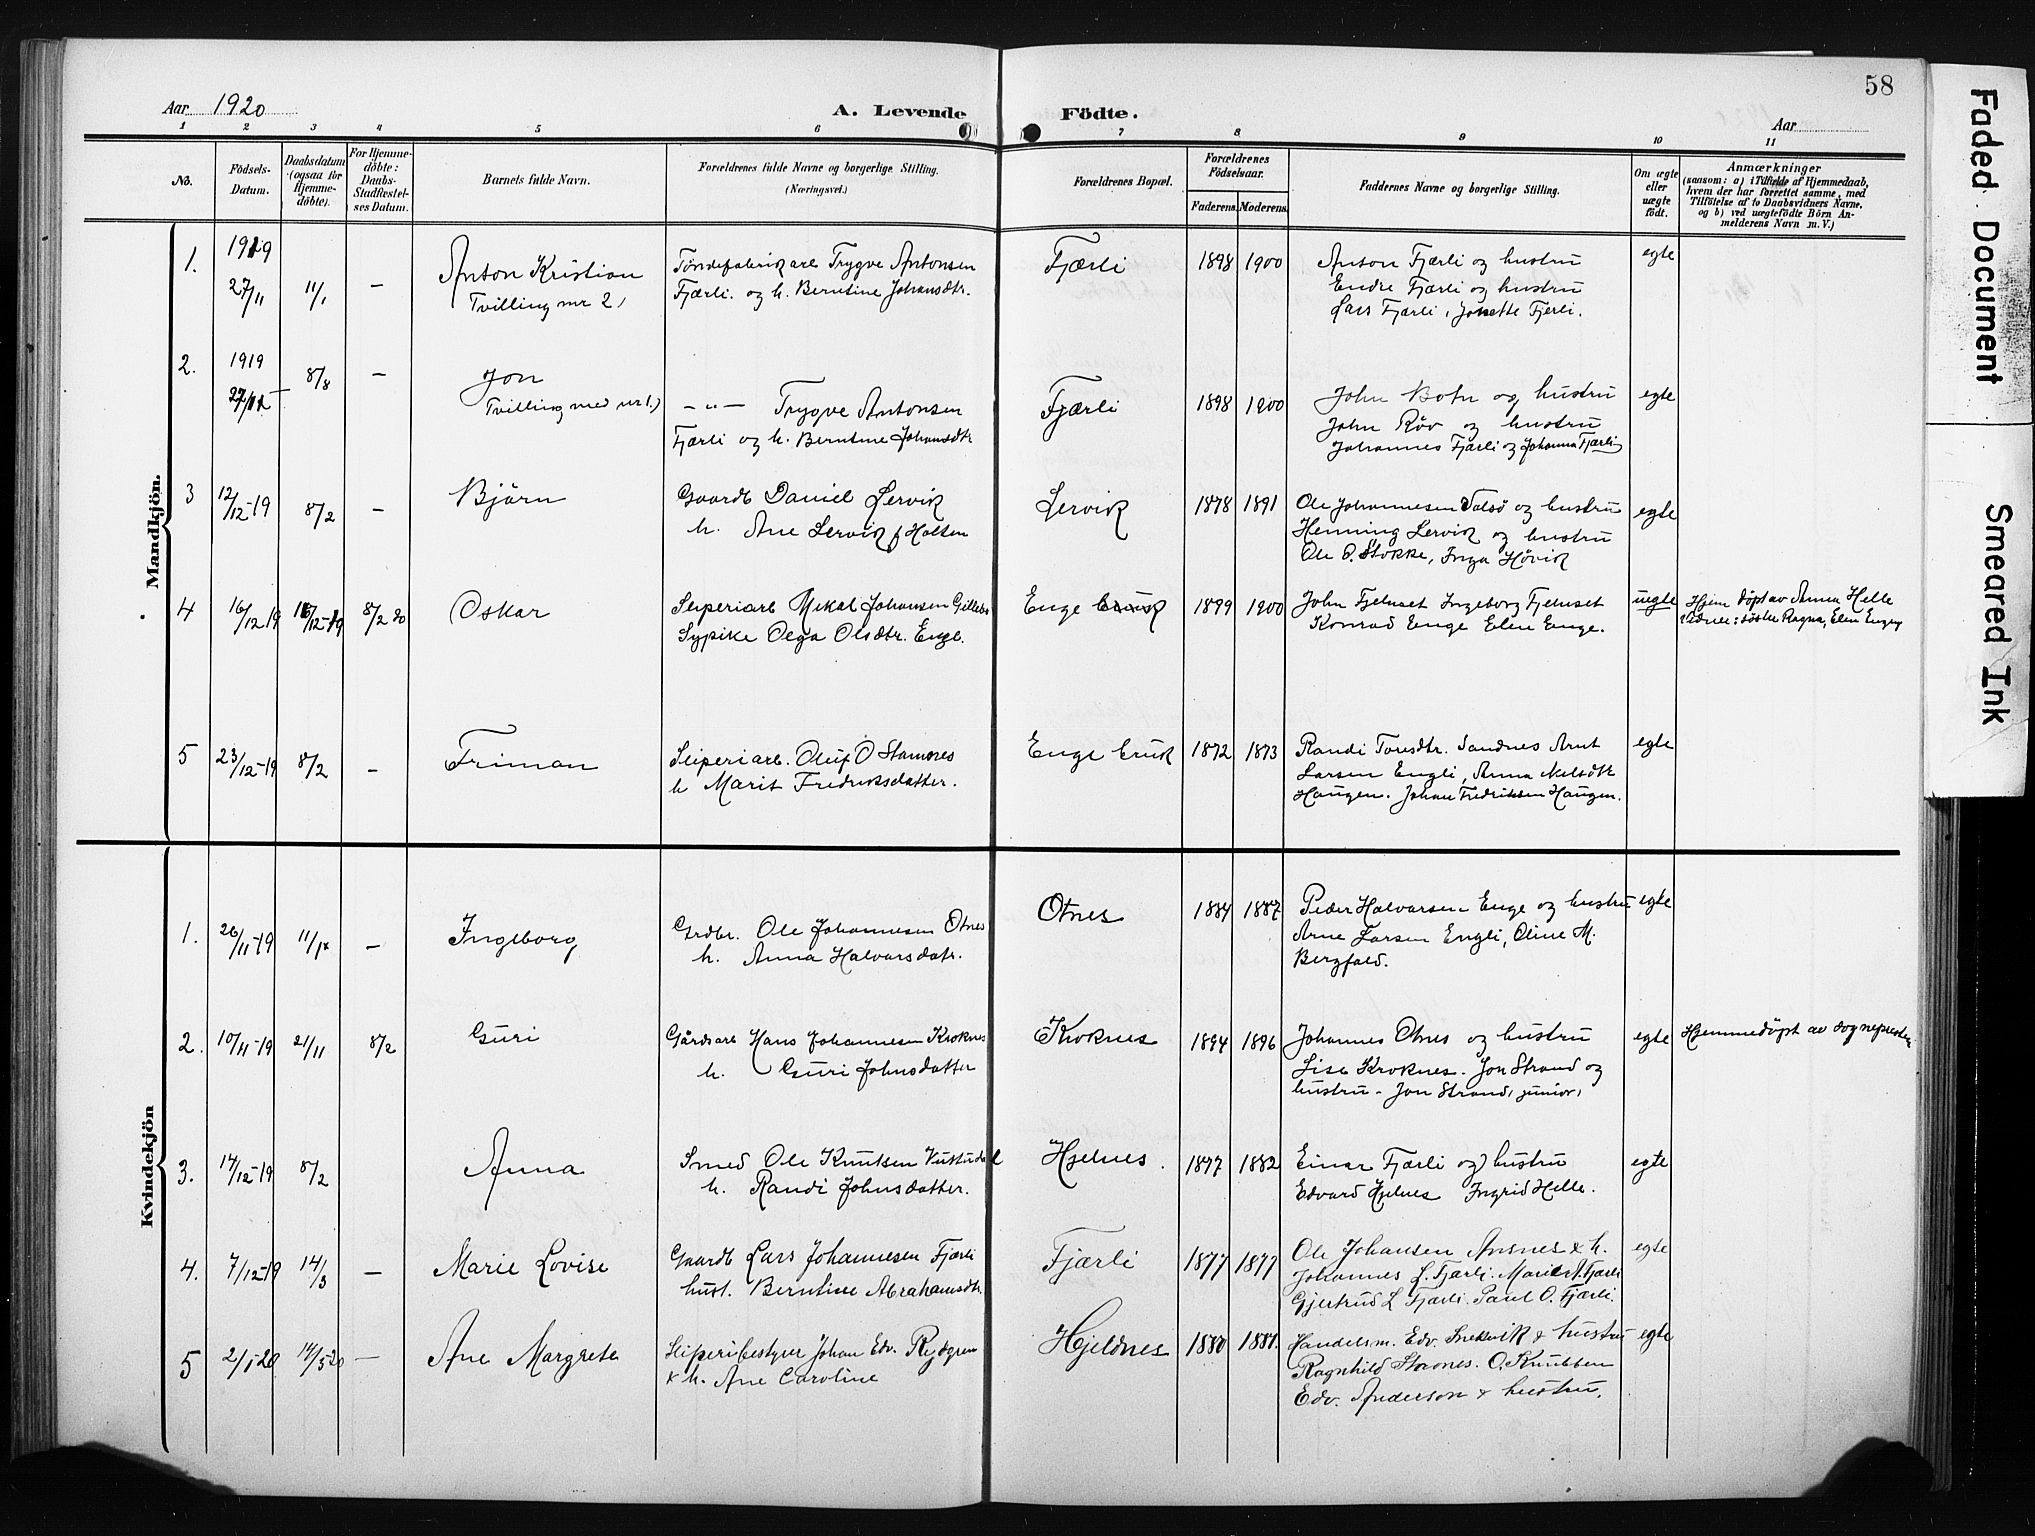 58
Aar 1920
A. Levende Födte.
Aar
1 2 3 4 5 6 7 8 9 10 11
No.
Födsels-Datum.
Daabsdatum (ogsaa for Hjemmedöbte).
For Hjemmedöbte: Daabs-Stadfæstelses Datum.
Barnets fulde Navn.
Forældrenes fulde Navne og borgerlige Stilling. (Næringsvei.)
Forældrenes Bopæl.
Forældrenes Födselsaar.
Faderens. Moderens.
Faddernes Navne og borgerlige Stilling.
Om ægte eller uægte födt.
Anmærkninger
(sansom: a) i Tilfælde af Hjemmedaab,
hvem der har forrettet samme, med
Tilföielse af to Daabsvidners Navne,
og b) ved uægtefödte Börn An-
melderens Navn m. V.)
Mandkjön.
1. 1919 27/11 11/1 —
Anton Kristian
Tvilling nr 2)
Töndefabrikarb Trygve Antonsen
Fjærli. og h. Berntine Johansdtr.
Fjærli 1898 1900
Anton Fjærli og hustru
Endre Fjærli og hustru
Lars Fjærli, Jonette Fjerli.
egte
2. 1919 8/8 —
Jon
Tvilling med nr 1.)
— " — Trygve Antonsen
Fjærli og h. Berntine Johansdtr
Fjærli 1898 1900
John Botn og hustru
John Röv og hustru
Johannes Fjærli og Johanna Fjærli
egte
3 12/12-19 8/2 —
Björn
Gaardb Daniel Lervik
h. Ane Lervik f Holten
Lervik 1878 1891
Ole Johannesen Valsö og hustru
Henning Lervik og hustru
Ole P. Stokke, Inga Hövik
egte
4 16/12 19 16/12-19 8/2 20
Oskar
Seiperiarb Mikal Johansen
Sypike Olga Olsdtr. Enge.
Enge 1899 1900
John Fjeluset Ingeborg Fjeluset
Konrad Enge Elen Enge.
uegte
Hjem döpt av Anna Helle
Vidner: söster Ragna, Elen Enge
5 23/12-19 8/2 —
Friman
Seiperiarb. Oluf O Stamnes
h Marit Fredriksdatter.
Enge bruk 1872 1873
Randi Toresdtr. Sandnes Arnt
Larsen Engli, Anna Nelsdtr
Haugen. Johan Fredriksen Haugen.
egte
Kvindekjön
1. 26/11-19 —
Ingeborg
Grdbr. Ole Johannesen Otnes
h. Anna Halvarsdatr.
Otnes 1884 1887
Peder Halvarsen Enge og hustru
Arne Larsen Engli, Oline M.
Bergfald.
egte
2. 10/11-19 21/11 8/2
Guri
Gårdsarb Hans Johannesen Kroknes
h. Guri Johnsdatter
Kroknes 1894 1896
Johannes Otnes og hustru
Lise Kroknes. Jon Strand og
hustru - Jon Strand, junior,
egte
Hjemmedöpt av sognepresten
3. 14/12-19 8/2
Anna
Smed Ole Knutsen
h. Randi Johnsdatter.
Hjelnes. 1877 1882
Einar Fjærli og hustru
Edvard Hjelnes Ingrid Helle.
egte
4. 7/12-19 14/3 —
Marie Lovise
Gaardb Lars Johannesen Fjærli
hust. Berntine Abrahamsdtr.
Fjærli 1877 1877
Ole Johansen Ansnes & h.
Johannes L. Fjærli. Marie A. Fjærli
Gjertrud L Fjærli. Paul O. Fjærli.
egte
5 2/1-20 14/3 20 —
Ane Margrete
Seiperibestyrer Johan Edv. Rydgren
& h. Ane Caroline
Hjeldnes 1880 1881.
Handelsm. Edv. Snekvik & hustru
Ragnhild Stavnes. O. Knubben
Edv. Anderson & hustru.
egte
Faded Document
Smeared Ink